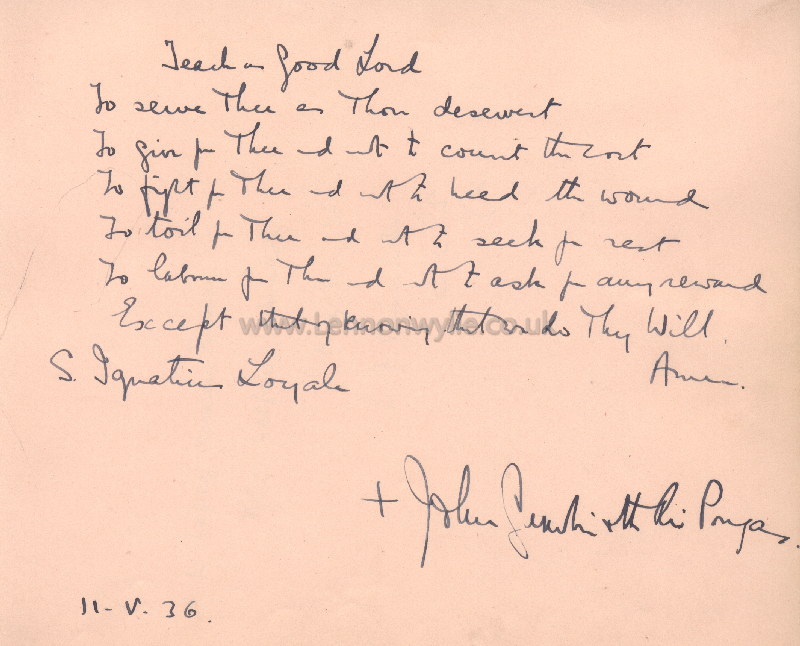 Teach us Good Lord
To serve Thee as Thou deservest
To give for Thee and not to count the cost
To fight for Thee and not to heed the wound
To toil for Thee and not to seek for rest
To labour for Thee and not to ask for any reward
Except that of knowing that we do Thy Will.
www.Lennonwylie.co.uk
Amen.
S. Ignatius Loyala
+ John
11-V-36.